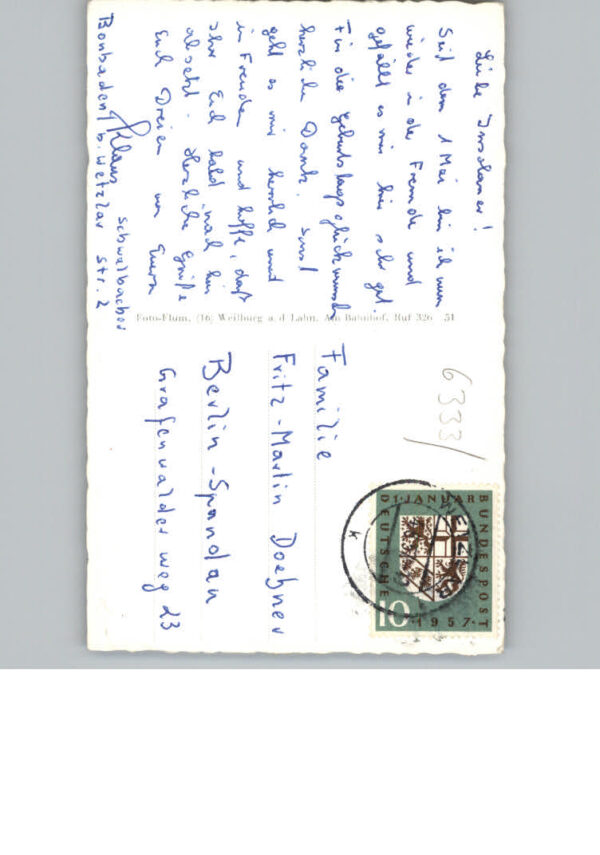 Liebe Insulaner!
Seit dem 1 Mai bin ich nun
wieder in der Fremde und
gefällt es mir hier sehr gut.
Für die Geburtstagsglückwünsche
herzlichen Dank. Sonst
geht es mir herrlich und
in Freuden und hoffe, daß
Ihr Euch bald mal hier
absetzt. Herzliche Grüße
Euch Dreien von Eurem
Klaus
Bonbaden / b. Wetzlar
Schwalbacher
Str. 2
Foto-Flum, (16) Weilburg a. d. Lahn, Am Bahnhof, Ruf 326 51
Familie
Fritz-Martin Doehner
Berlin-Spandau
Grafenwalder weg 23
6333/
1·JANUAR
DEUTSCHE
BUNDESPOST
10
1957
WETZLAR
k